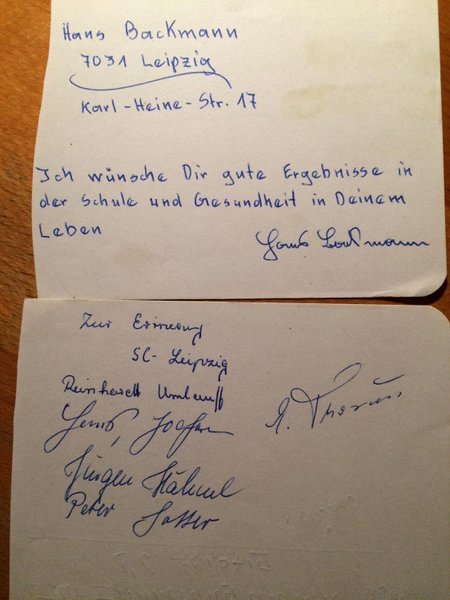 Hans Backmann
7031 Leipzig
Karl-Heine-Str. 17
Ich wünsche Dir gute Ergebnisse in
der Schule und Gesundheit in Deinem
Leben
Hans Backmann
Zur Erinnerung
SC-Leipzig
Umlauft
Jürgen Hähnel
Peter